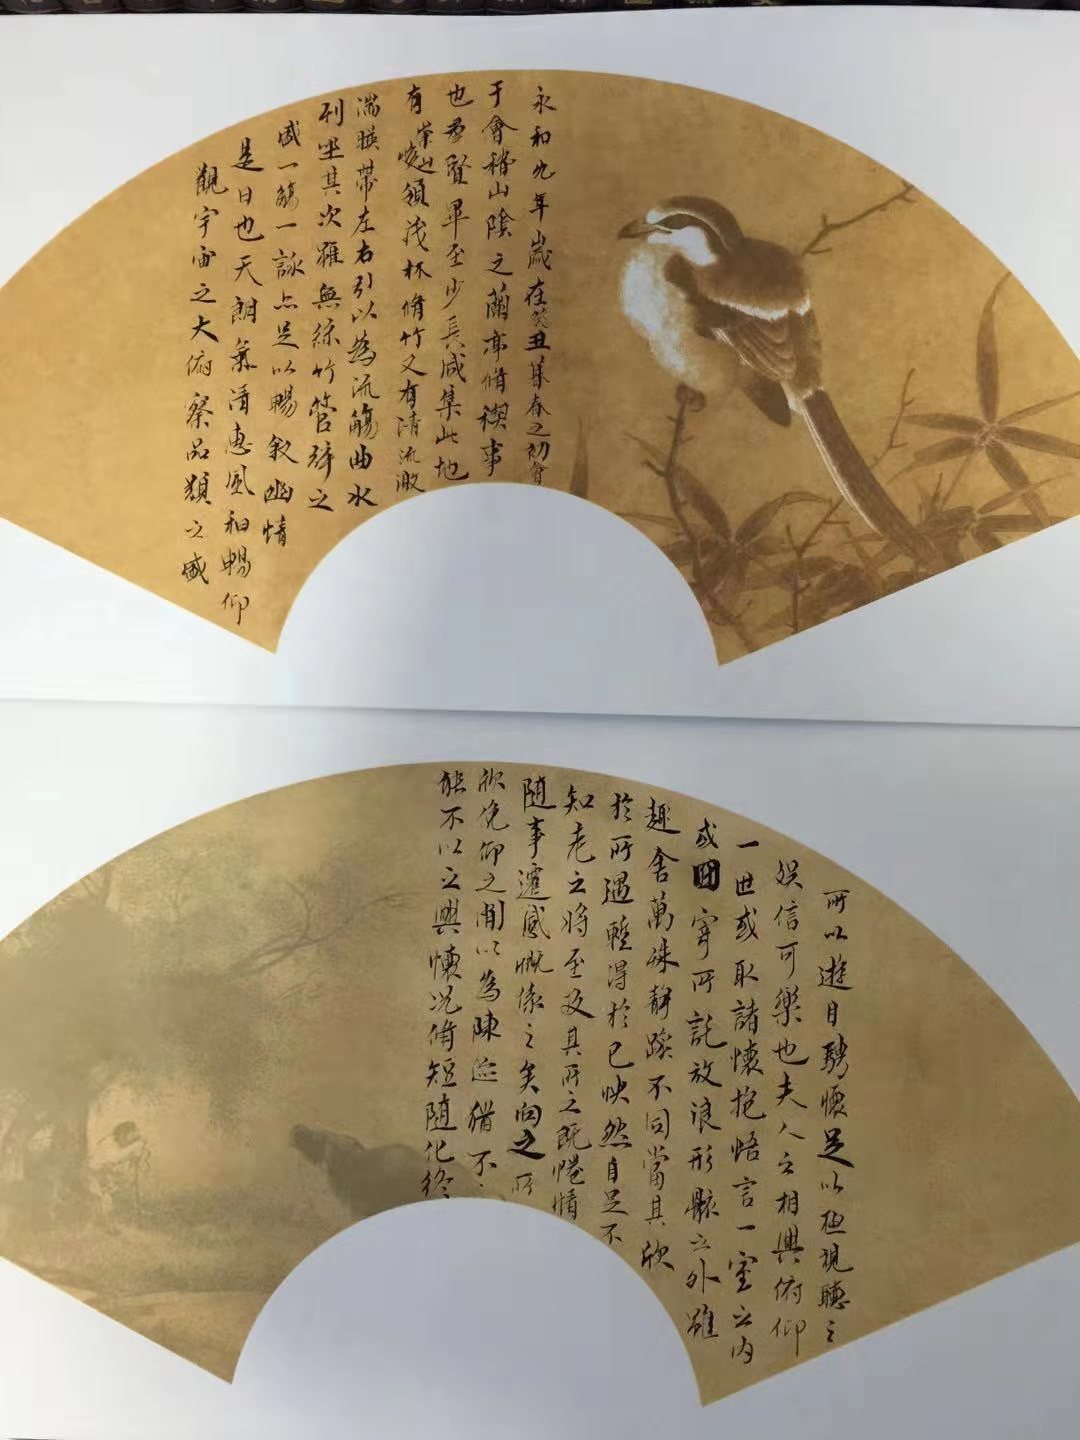 永和九年歲在癸丑暮春之初會
于會稽山陰之蘭亭脩禊事
也羣賢畢至少長咸集此地
有崇山峻領茂林脩竹又有清流激
湍暎帶左右引以為流觴曲水
列坐其次雖無絲竹管弦之
盛一觴一詠亦足以暢敘幽情
是日也天朗氣清惠風和暢仰
觀宇宙之大俯察品類之盛
所以遊目騁懷足以極視聽之
娛信可樂也夫人之相與俯仰
一世或取諸懷抱悟言一室之內
或因寄所託放浪形骸之外雖
趣舍萬殊靜躁不同當其欣
於所遇暫得於己快然自足不
知老之將至及其所之既惓情
隨事遷感慨係之矣向之所
欣俛仰之間以為陳迹猶不
能不以之興懷況脩短隨化終